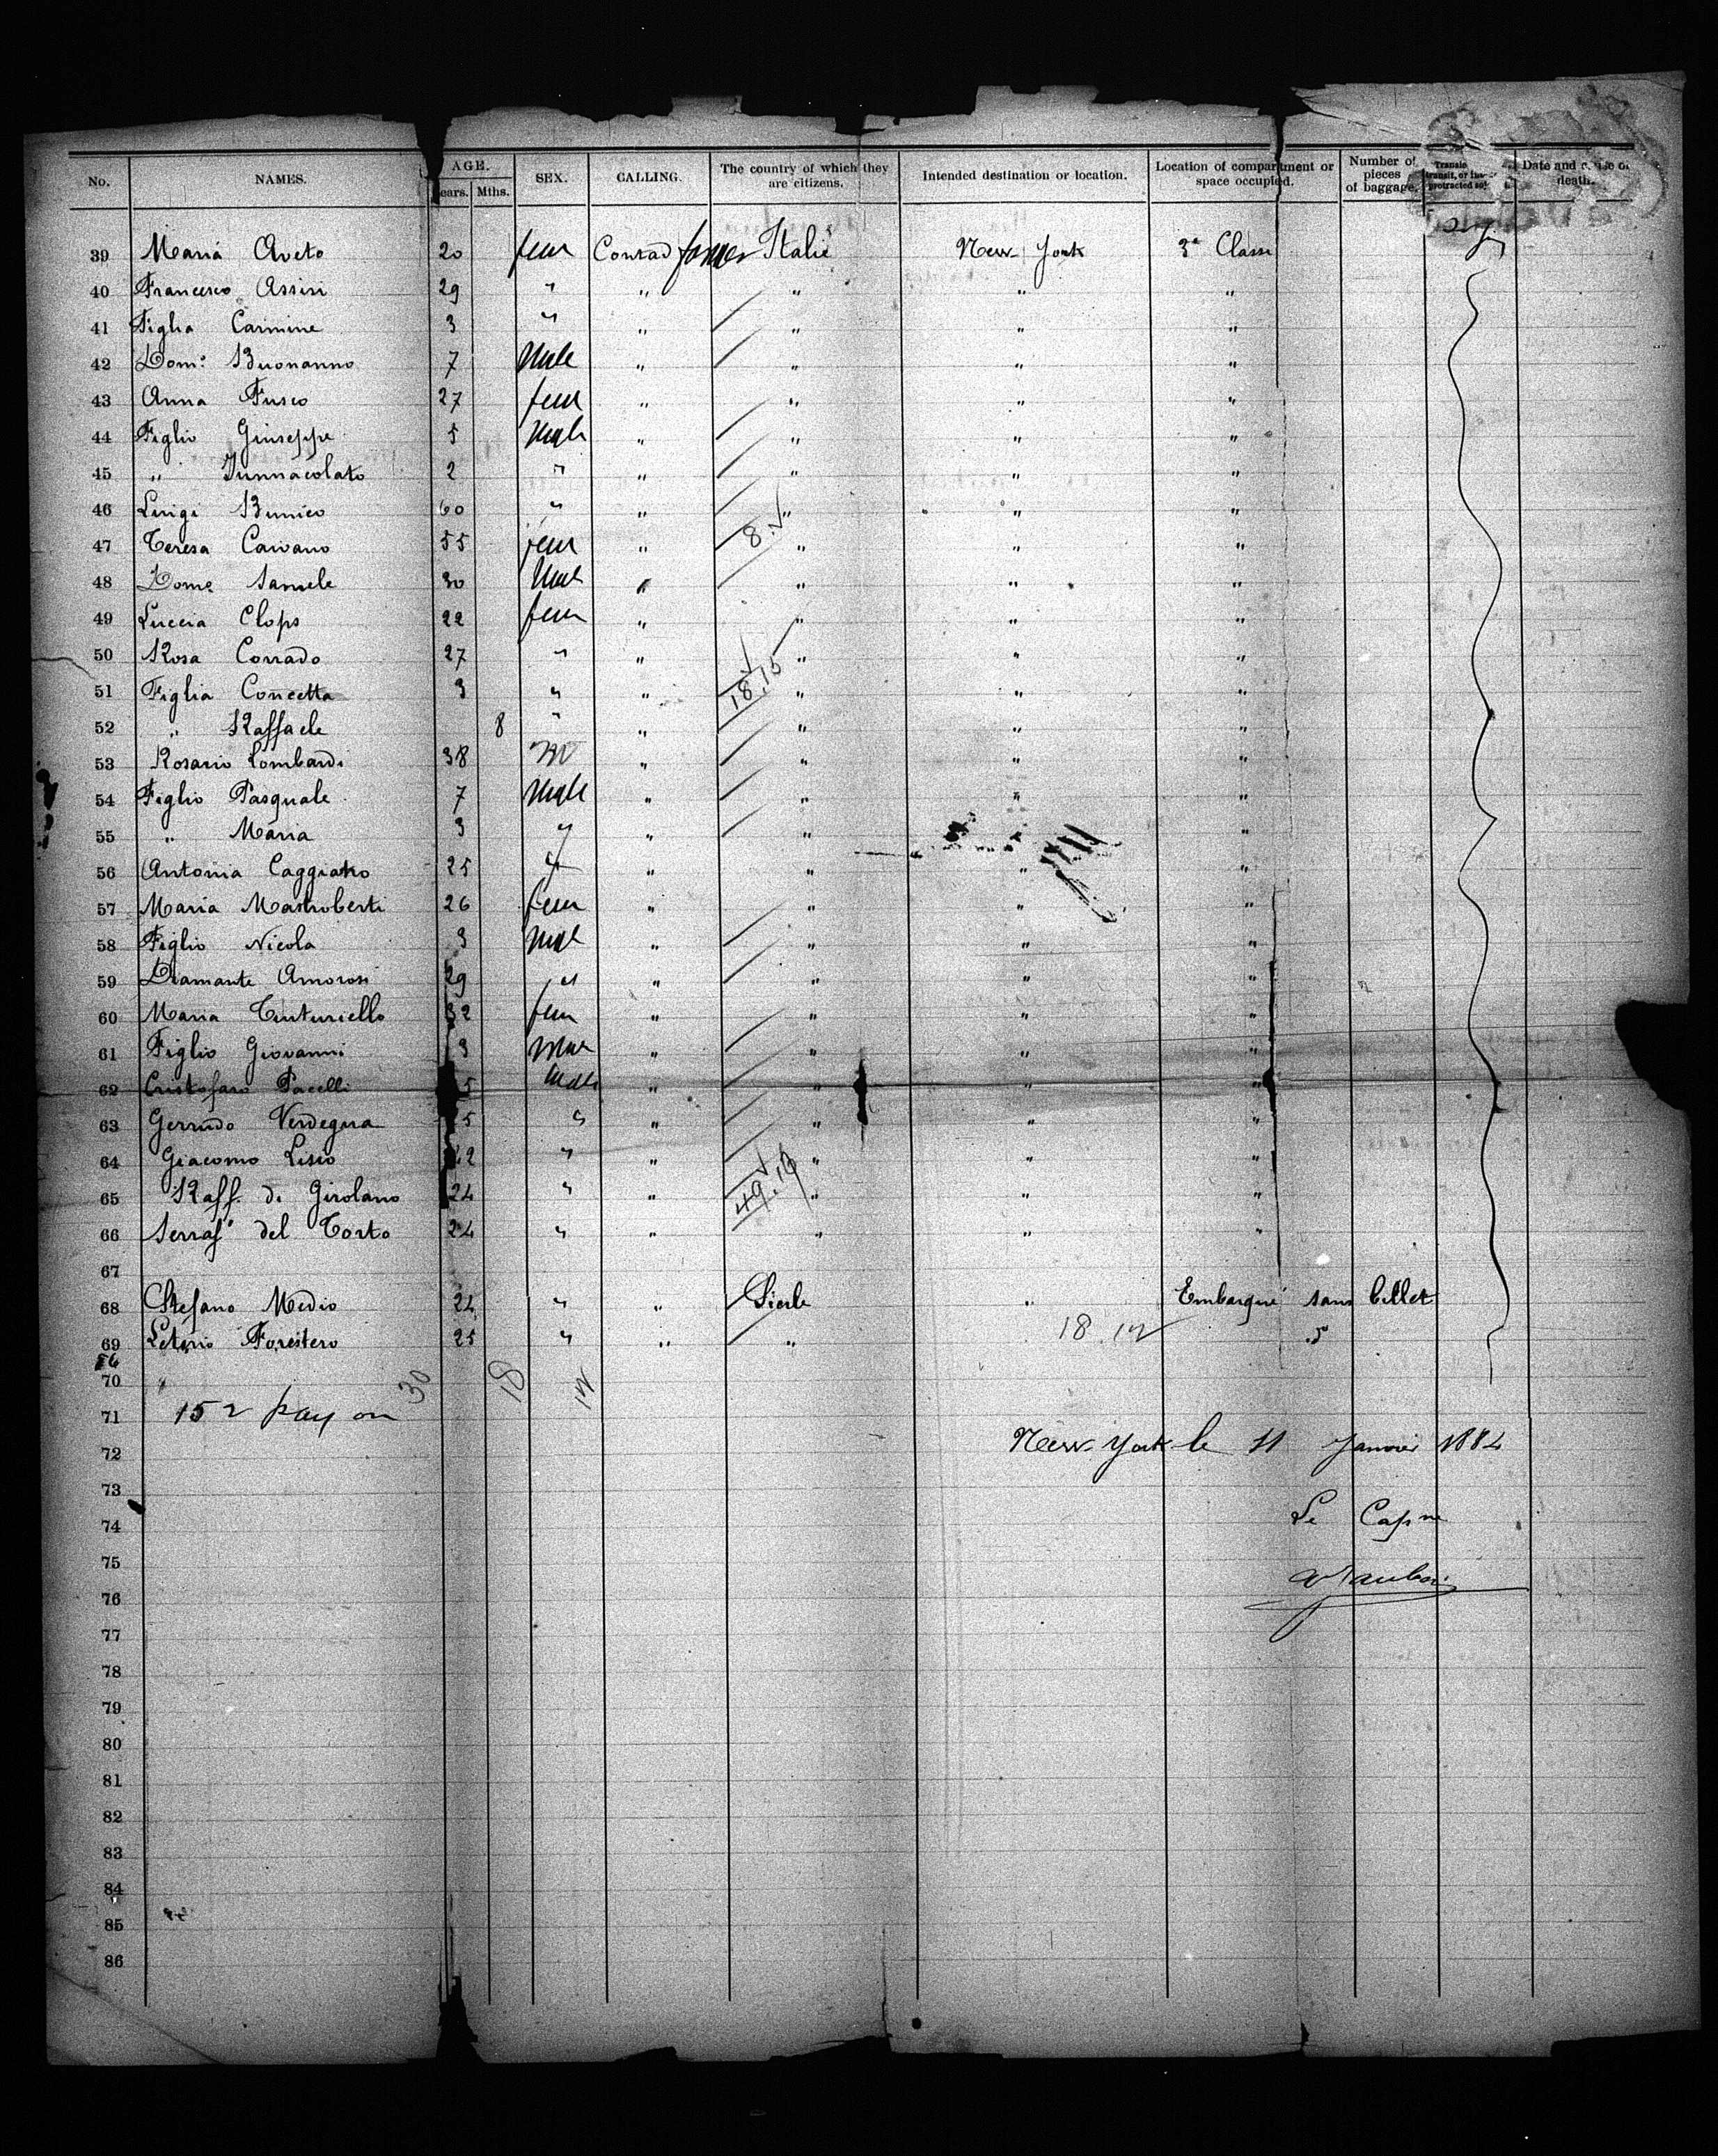 No. NAMES. AGE. Years. Mths. SEX. CALLING. The country of which they are citizens. Intended destination or location. Location of compartment or space occupied. Number of pieces of baggage. Date and cause of death.
39 Maria Aveto 20 fem Italie New-York 3e Classe
40 Francesco Assisi 29 " " " " "
41 Figlia Carmine 3 " " " " "
42 Dom: Buonanno 7 Male " " " "
43 Anna Fusco 27 fem " " " "
44 Figlio Giuseppe 5 Male " " " "
45 " Immacolato 2 " " " " "
46 Luigi Bunico 60 " " " " "
47 Teresa Caivano 55 fem " 8 " " "
48 Domo Samele 30 Male " " " "
49 Luccia Clops 22 fem " " " "
50 Rosa Corrado 27 " " " " "
51 Figlia Concetta 3 " " 18.15 " " "
52 " Raffaele 8 " " " " "
53 Rosario Lombardi 38 m " " " "
54 Figlio Pasquale 7 Male " " " "
55 " Maria 3 " " " "
56 Antonia Caggiano 25 " " " "
57 Maria Mastroberti 26 fem " " " "
58 Figlio Nicola 3 Male " " " "
59 Diamante Amorosi 29 " " " " "
60 Maria Tinturiello 32 fem " " " "
61 Figlio Giovanni 3 Male " " " "
62 Cristofaro Pacelli 5 Male " " " "
63 Gerrudo Verdegua 5 " " " " "
64 Giacomo Lisio 42 " " " " "
65 Raff. di Girolano 24 " " " " "
66 Serraf° del Torto 24 " " " " "
67
68 Stefano Medio 24 " " " Embarqué sans billet
69 Letterio Forestero 25 " " " 18.12
70
71 152 pay on 30 18 12
72 New-York le 11 Janvier 1884
73
74 Le Capne
75
76
77
78
79
80
81
82
83
84
85
86